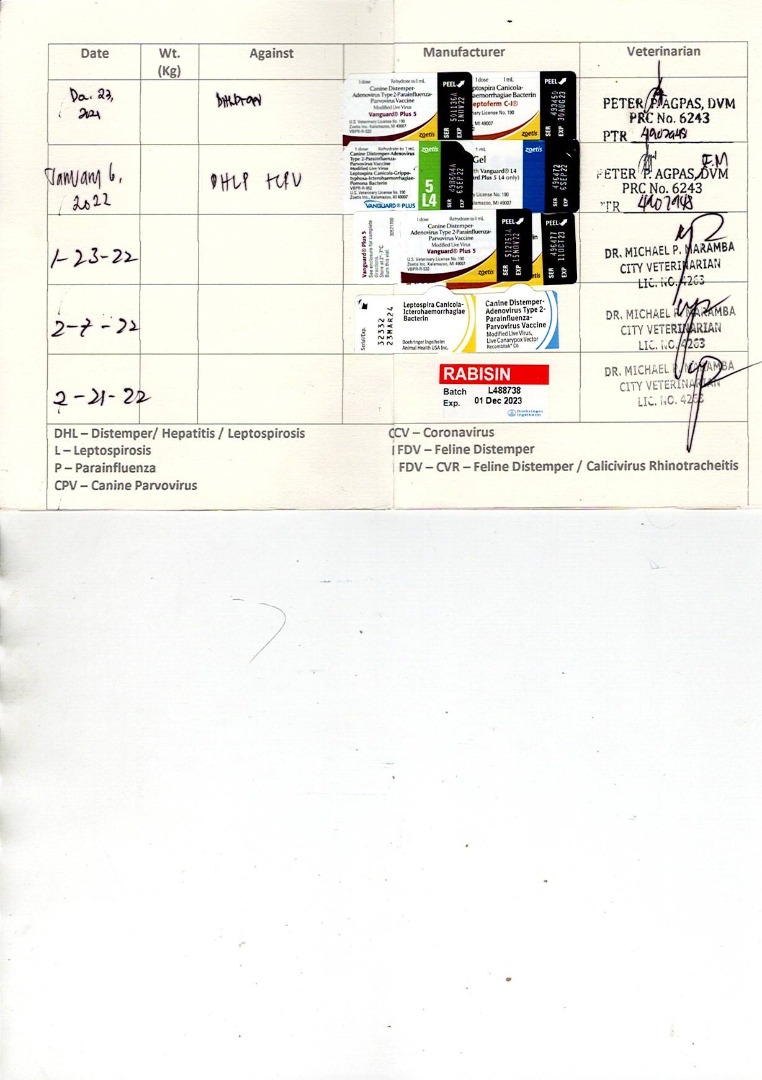 Date Wt. (Kg) Against Manufacturer Veterinarian
Dec. 23, 2021
1 dose Rehydrate to 1 mL
Canine Distemper-
Adenovirus Type 2-Parainfluenza-
Parvovirus Vaccine
Modified Live Virus
Vanguard® Plus 5
U.S. Veterinary License No. 190
Zoetis Inc. Kalamazoo, MI 49007
VBPR-R-532
zoetis
PEEL
SER
EXP 1NOV22
1 dose 1 mL
ptospira Canicola-
aemorrhagiae Bacterin
eptoferm C-I®
rinary License No. 190
MI 49007
zoetis
PEEL
SER 493450
EXP 30AUG23
PETER P. AGPAS, DVM
PRC No. 6243
PTR 4907948
January 6, 2022
DHLP + CPV
1 dose Rehydrate to 1 mL
Canine Distemper-Adenovirus
Type 2-Parainfluenza-
Parvovirus Vaccine
Modified Live Virus
Leptospira Canicola-Grippo-
typhosa-Icterohaemorrhagiae-
Pomona Bacterin
U.S. Veterinary License No. 190
Zoetis Inc. Kalamazoo, MI 49007
VANGUARD® PLUS
zoetis
5
L4
SER
EXP 6SEP22
1 mL
Gel
with Vanguard® L4
rd Plus 5 L4 only)
License No. 190
lamazoo, MI 49007
SER 499472
EXP 6SEP22
PETER P. AGPAS, DVM
PRC No. 6243
PTR 4907948
1-23-22
Vanguard® Plus 5
See brochure for complete
directions.
Store at 2°-7°C
1 dose Rehydrate to 1 mL
Canine Distemper-
Adenovirus Type 2-Parainfluenza-
Parvovirus Vaccine
Modified Live Virus
Vanguard® Plus 5
U.S. Veterinary License No. 190
Zoetis Inc. Kalamazoo, MI 49007
VBPR-R-532
zoetis
PEEL
SER
EXP 15NOV22
PEEL
SER 496477
EXP 11OCT23
DR. MICHAEL P. MARAMBA
CITY VETERINARIAN
LIC. NO. 4263
2-7-22
Serial/Exp.
32332
23MAR24
Leptospira Canicola-
Icterohaemorrhagiae
Bacterin
Boehringer Ingelheim
Animal Health USA Inc.
Canine Distemper-
Adenovirus Type 2-
Parainfluenza-
Parvovirus Vaccine
Modified Live Virus,
Live Canarypox Vector
Recombitek® C6
DR. MICHAEL P. MARAMBA
CITY VETERINARIAN
LIC. NO. 4263
2-21-22
RABISIN
Batch L488738
Exp. 01 Dec 2023
Boehringer
Ingelheim
DR. MICHAEL P. MARAMBA
CITY VETERINARIAN
LIC. NO. 4263
DHL – Distemper/ Hepatitis / Leptospirosis
L – Leptospirosis
P – Parainfluenza
CPV – Canine Parvovirus
CCV – Coronavirus
FDV – Feline Distemper
FDV – CVR – Feline Distemper / Calicivirus Rhinotracheitis